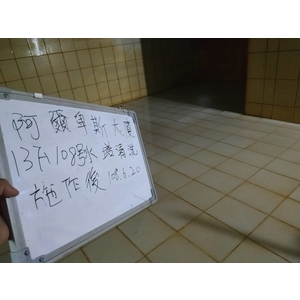 阿爾卑斯大廈
13F108號水塔清洗
施作後 108.6.20